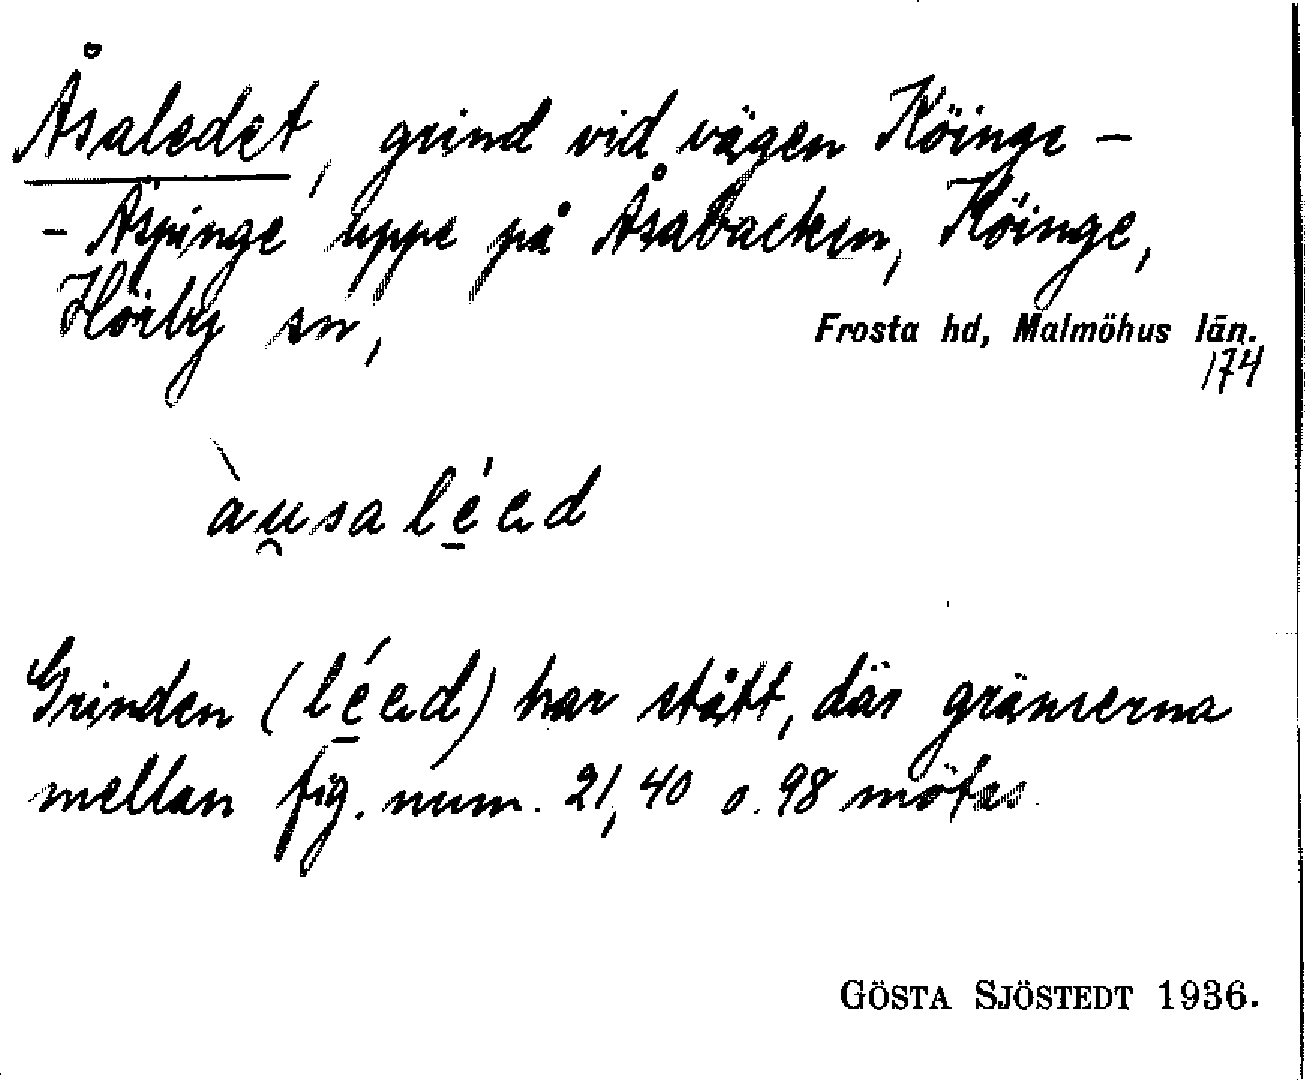 Åsaledet, grind vid vägen Köinge –
– Äspinge uppe på Åsabacken, Köinge,
Hörby sn,
Frosta hd, Malmöhus län.
174
Grinden (          ) har stått, där gränserna
mellan fig. num. 21, 40 o. 98 mötas.
GÖSTA SJÖSTEDT 1936.